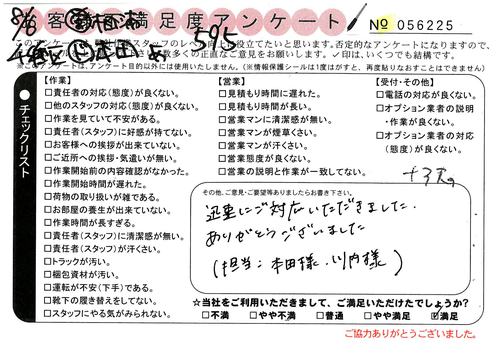 8/6
お客様満足度アンケート
595
No 056225
このアンケートは、弊社スタッフのレベル向上に役立てたいと思います。否定的なアンケートになりますので、
数多くの正直なご意見をお願いします。✓印は、いくつでも結構です。
※このアンケートは、アンケート目的以外には使用いたしません。(※情報保護シールは1度がすと、再度貼りなおすことはできません)
●チェックリスト
【作業】
□責任者の対応(態度)が良くない。
□他のスタッフの対応(態度)が良くない。
□作業を見ていて不安がある。
□責任者(スタッフ)に好感が持てない。
□お客様への挨拶が出来ていない。
□ご近所への挨拶・気遣いが無い。
□作業開始前の内容確認がなかった。
□作業開始時間が遅れた。
□荷物の取り扱いが雑である。
□お部屋の養生が出来ていない。
□作業時間が長すぎる。
□責任者(スタッフ)に清潔感が無い。
□責任者(スタッフ)が汗くさい。
□トラックが汚い。
□梱包資材が汚い。
□運転が不安(下手)である。
□靴下の履き替えをしてない。
□スタッフにやる気がみられない。
【営業】
□見積もり時間に遅れた。
□見積もり時間が長い。
□営業マンに清潔感が無い。
□営業マンが煙草くさい。
□営業マンが汗くさい。
□営業態度が良くない。
□営業の説明と作業が一致してない。
【受付・その他】
□電話の対応が良くない。
□オプション業者の説明
・作業が良くない。
□オプション業者の対応
(態度)が良くない。
その他、ご意見・ご要望等ありましたらお書き下さい。
迅速にご対応いただきました.
ありがとうございました
(担当:本田様、川内様)
☆当社をご利用いただきまして、ご満足いただけたでしょうか?
□不満 □やや不満 □普通 □やや満足 ☑満足
ご協力ありがとうございました。